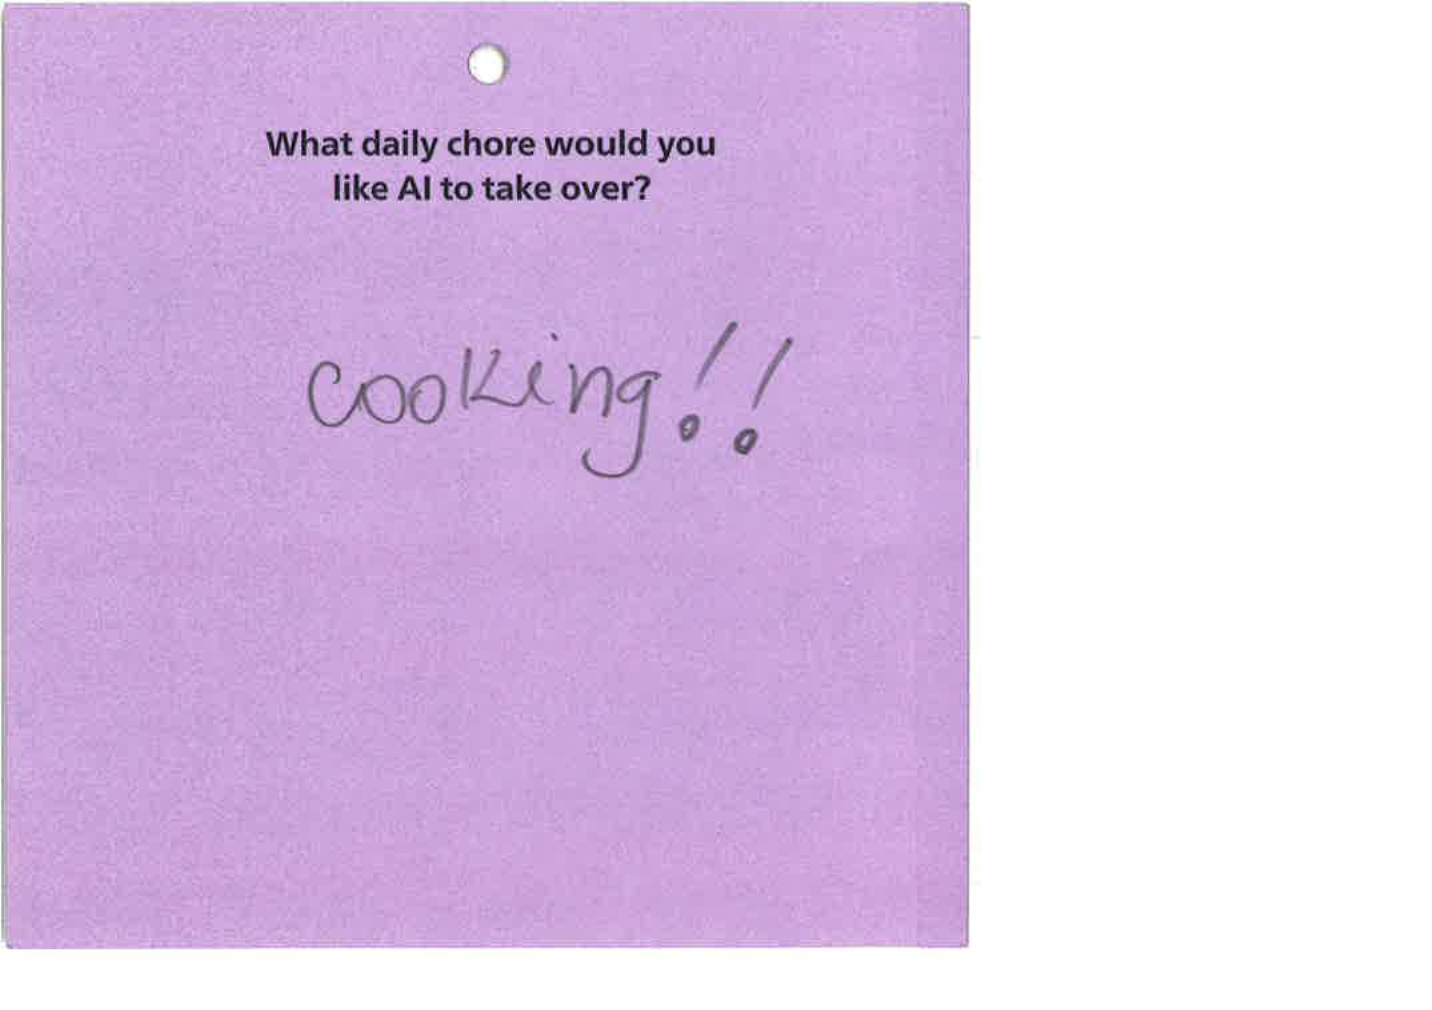 What daily chore would you
like AI to take over?
cooking!!